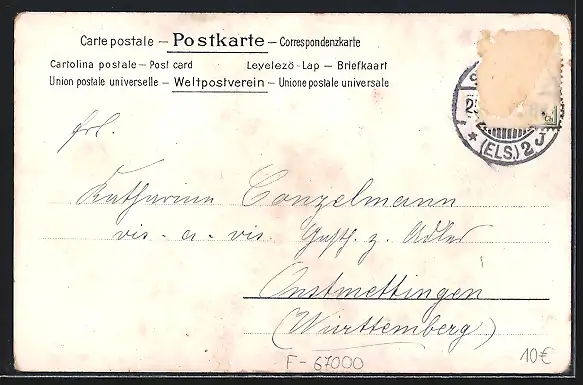 Carte postale – Postkarte – Correspondenzkarte
Cartolina postale – Post card Levelezö-Lap – Briefkaart
Union postale universelle – Weltpostverein – Unione postale universale
(ELS.) 2 J
Frl.
Katharina Conzelmann
vis-a-vis Gasth. z. Adler
Onstmettingen
(Württemberg)
F-67000
10€